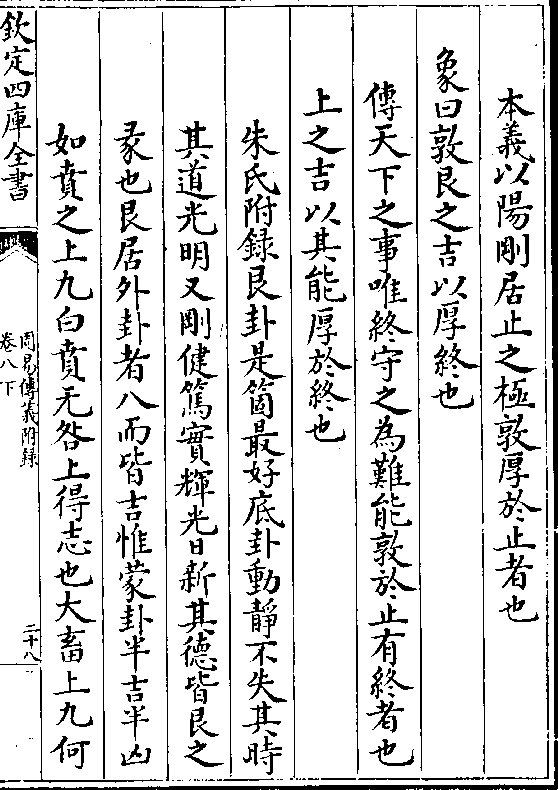 本義以陽剛居止之極敦厚於止者也
象曰敦艮之吉以厚終也
傳天下之事唯終守之為難能敦於止有終者也
上之吉以其能厚於終也
朱氏附録艮卦是箇最好底卦動靜不失其時
其道光明又剛健篤實輝光日新其德皆艮之
彖也艮居外卦者八而皆吉惟蒙卦半吉半凶
如賁之上九白賁无咎上得志也大畜上九何
欽定四庫全書
周易傳義附録
卷八下
二十八